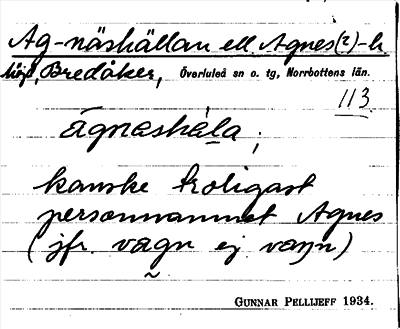 Ag-näshällan ell. Agnes(2)-h
höjd, Bredåker, Överluleå sn o. tg, Norrbottens län.
113
ágnəshɛ̀la;
kanske troligast
personnamnet Agnes
(jfr. vagn ej vaŋn)
GUNNAR PELLIJEFF 1934.